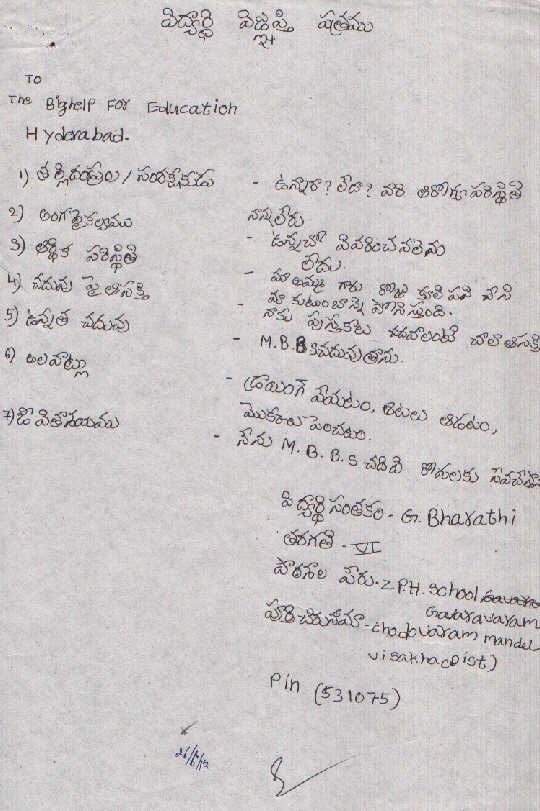 విద్యార్థి విజ్ఞప్తి పత్రము
TO
The Bighelp For Education
Hyderabad.
1) తల్లిదండ్రుల / సంరక్షకుడు - ఉన్నారా? లేదా? వారి ఆరోగ్య పరిస్థితి
నాన్నలేరు
2) అంగవైకల్యము - ఉన్నచో వివరించవలెను
లేదు.
3) ఆర్థిక పరిస్థితి - మా అమ్మ గారు కూలి పని చేసి
మా కుటుంబాన్ని పోషిస్తుంది.
4) చదువు పై ఆసక్తి - నాకు పుస్తకాలు చదవాలంటే చాలా ఆసక్తి
5) ఉన్నత చదువు - M.B.B.S చదువుతాను.
6) అలవాట్లు - డ్రాయింగ్ వేయటం, ఆటలు ఆడటం,
మొక్కలు పెంచటం.
7) జీవితాశయము - నేను M.B.B.S చదివి రోగులకు సేవచేస్తా
విద్యార్థి సంతకం - G. Bharathi
తరగతి - VI
పాఠశాల పేరు - Z.P.H. School
Gavaravaram
పూర్తి చిరునామా - chodavaram mandal
visakha(Dist)
Pin (531075)